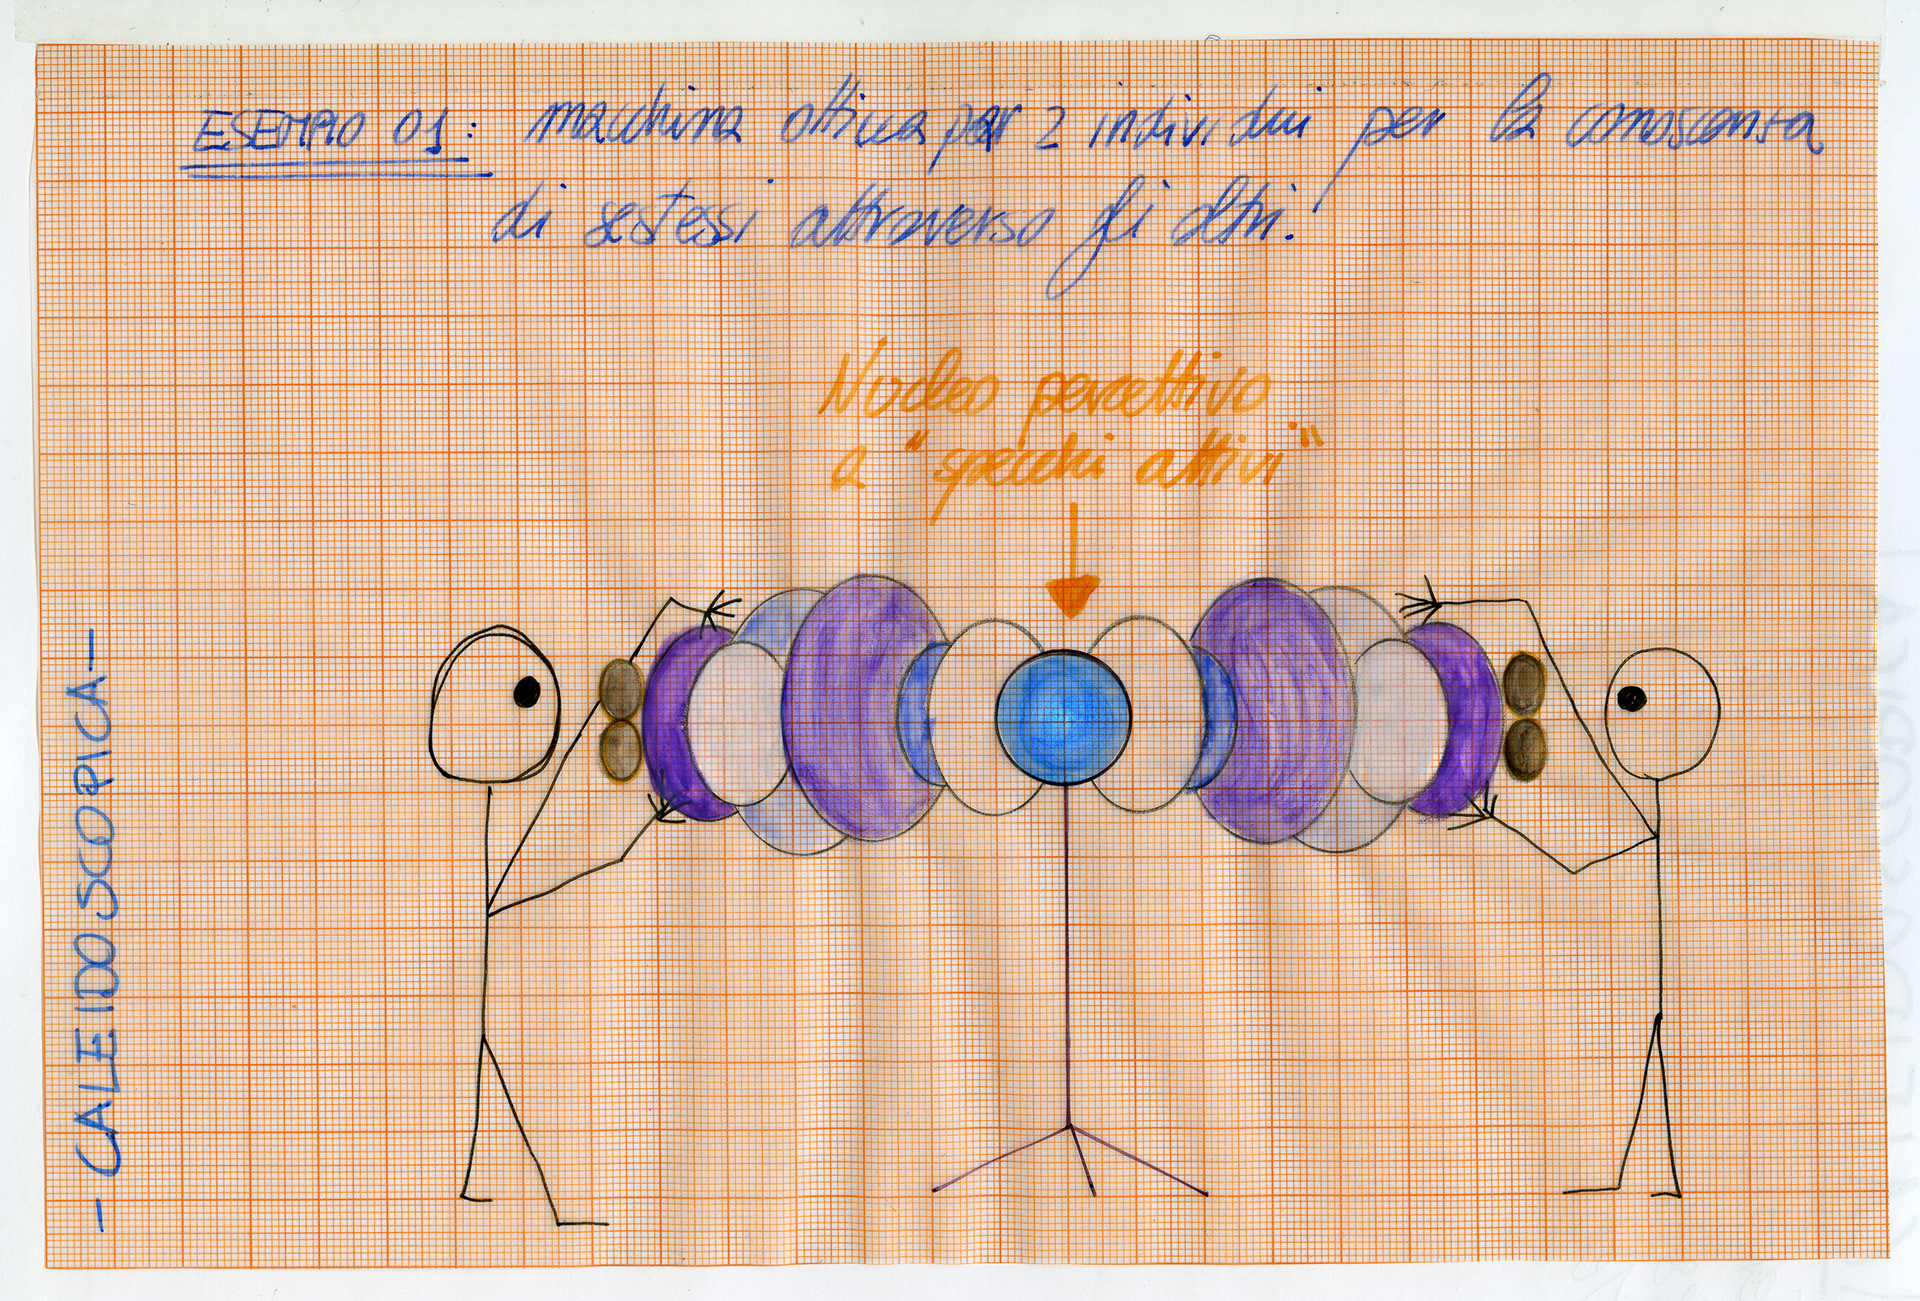 ESEMPIO 01: macchina ottica per 2 individui per la conoscenza
di sestessi attraverso gli altri!
Nucleo percettivo
a "specchi attivi"
- CALEIDOSCOPICA -